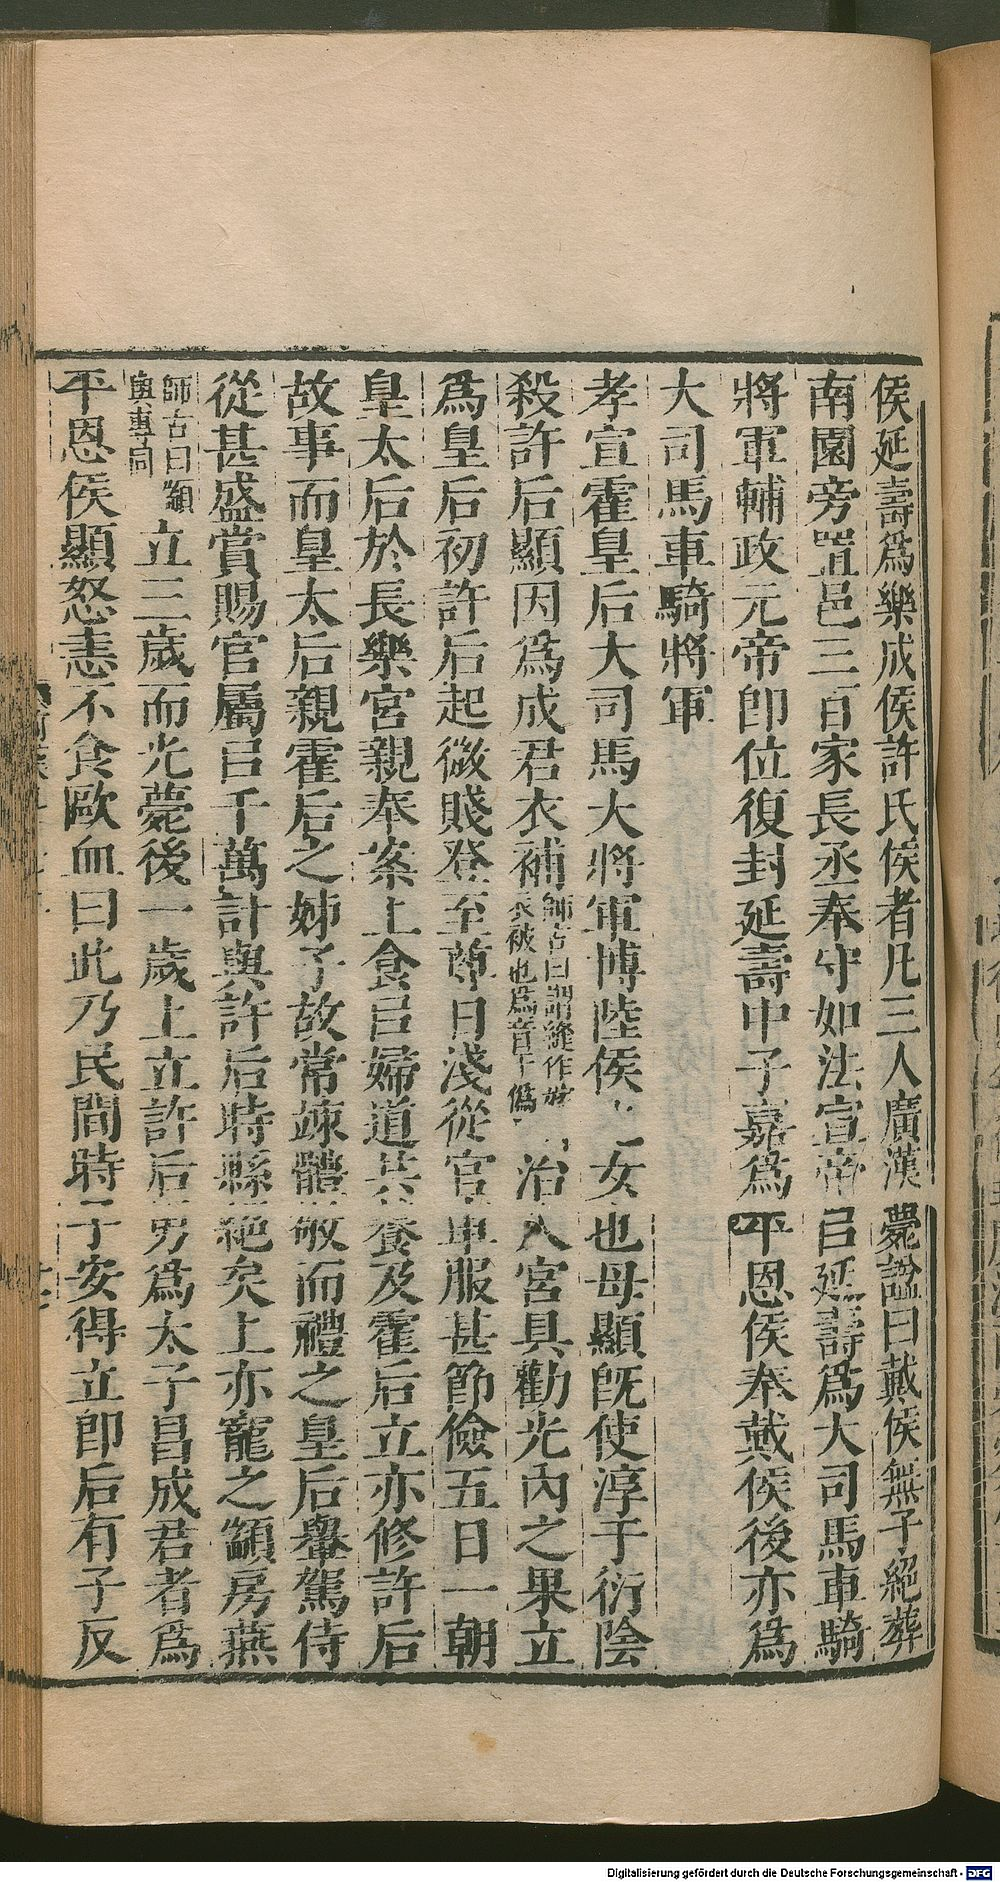 侯延壽爲樂成侯許氏侯者凡三人廣漢薨諡曰戴侯無子絕葬
南園旁置邑三百家長丞奉守如法宣帝㠯延壽爲大司馬車騎
將軍輔政元帝即位復封延壽中子嘉爲平恩侯奉戴侯後亦爲
大司馬車騎將軍
孝宣霍皇后大司馬大將軍博陸侯女也母顯旣使淳于衍陰
殺許后顯因爲成君衣補
師古曰謂縫作
衣被也爲音于僞
治入宮具勸光內之果立
爲皇后初許后起微賤登至尊日淺從官車服甚節儉五日一朝
皇太后於長樂宮親奉案上食㠯婦道共養及霍后立亦修許后
故事而皇太后親霍后之姊子故常竦體敬而禮之皇后轝駕侍
從甚盛賞賜官屬㠯千萬計與許后時縣絕矣上亦寵之顓房燕
師古曰顓
與專同
立三歲而光薨後一歲上立許后男爲太子昌成君者爲
平恩侯顯怒恚不食歐血曰此乃民間時子安得立即后有子反
Digitalisierung gefördert durch die Deutsche Forschungsgemeinschaft - DFG